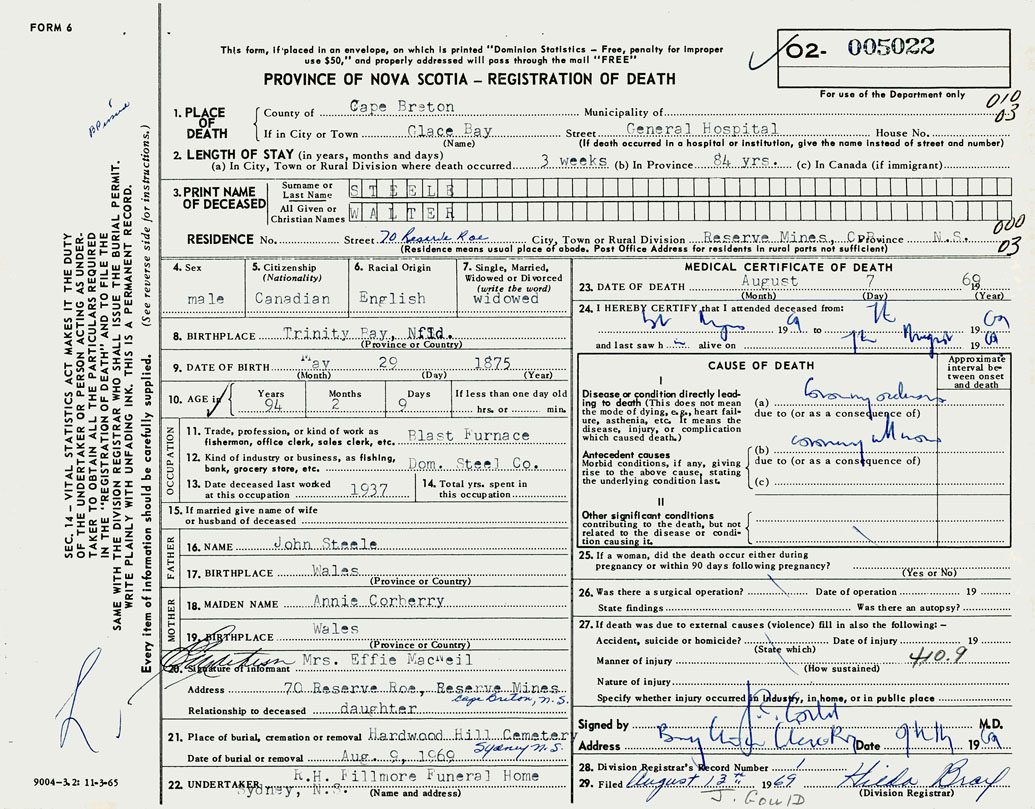 FORM 6
This form, if placed in an envelope, on which is printed "Dominion Statistics – Free, penalty for improper
use $50," and properly addressed will pass through the mail "FREE"
PROVINCE OF NOVA SCOTIA – REGISTRATION OF DEATH
02- 005022
For use of the Department only
010
03
1. PLACE OF DEATH
County of Cape Breton Municipality of
If in City or Town Glace Bay Street General Hospital House No.
(Name) (If death occurred in a hospital or institution, give the name instead of street and number)
2. LENGTH OF STAY (in years, months and days)
(a) In City, Town or Rural Division where death occurred 3 weeks (b) In Province 84 yrs. (c) In Canada (if immigrant)
3. PRINT NAME OF DECEASED
Surname or Last Name STEELE
All Given or Christian Names WALTER
000
03
RESIDENCE No. Street 70 Reserve Roe City, Town or Rural Division Reserve Mines, C.B. Province N.S.
(Residence means usual place of abode. Post Office Address for residents in rural parts not sufficient)
4. Sex
male
5. Citizenship (Nationality)
Canadian
6. Racial Origin
English
7. Single, Married, Widowed or Divorced (write the word)
widowed
8. BIRTHPLACE Trinity Bay, Nfld.
(Province or Country)
9. DATE OF BIRTH May 29 1875
(Month) (Day) (Year)
10. AGE in
Years Months Days If less than one day old
94 2 9 hrs. or min.
OCCUPATION
11. Trade, profession, or kind of work as
fisherman, office clerk, sales clerk, etc. Blast Furnace
12. Kind of industry or business, as fishing,
bank, grocery store, etc. Dom. Steel Co.
13. Date deceased last worked
at this occupation 1937
14. Total yrs. spent in
this occupation
15. If married give name of wife
or husband of deceased
FATHER
16. NAME John Steele
17. BIRTHPLACE Wales
(Province or Country)
MOTHER
18. MAIDEN NAME Annie Corberry
19. BIRTHPLACE Wales
(Province or Country)
20. Signature of informant Mrs. Effie MacNeil
Address 70 Reserve Roe, Reserve Mines
Cape Breton, N.S.
Relationship to deceased daughter
21. Place of burial, cremation or removal Hardwood Hill Cemetery
Sydney N.S.
Date of burial or removal Aug. 9, 1969
22. UNDERTAKER R.H. Fillmore Funeral Home
Sydney, N.S. (Name and address)
MEDICAL CERTIFICATE OF DEATH
23. DATE OF DEATH August 7 1969
(Month) (Day) (Year)
24. I HEREBY CERTIFY that I attended deceased from:
19 69 to 7th August 19 69
and last saw h alive on 7th August 19 69
CAUSE OF DEATH
Approximate interval between onset and death
I
Disease or condition directly leading
to death (This does not mean
the mode of dying, e.g., heart failure,
asthenia, etc. It means the
disease, injury, or complication
which caused death.)
(a) Coronary
due to (or as a consequence of)
Antecedent causes
Morbid conditions, if any, giving
rise to the above cause, stating
the underlying condition last.
(b) coronary
due to (or as a consequence of)
(c)
II
Other significant conditions
contributing to the death, but not
related to the disease or condition
causing it.
25. If a woman, did the death occur either during
pregnancy or within 90 days following pregnancy?
(Yes or No)
26. Was there a surgical operation? Date of operation 19
State findings Was there an autopsy?
27. If death was due to external causes (violence) fill in also the following: –
Accident, suicide or homicide? Date of injury 19
(State which)
Manner of injury 410.9
(How sustained)
Nature of injury
Specify whether injury occurred in Industry, in home, or in public place
Signed by M.D.
Address Date 19 69
28. Division Registrar's Record Number
29. Filed August 13th 1969 Hilda
(Division Registrar)
J. GOULD
SEC. 14 – VITAL STATISTICS ACT MAKES IT THE DUTY
OF THE UNDERTAKER OR PERSON ACTING AS UNDER-
TAKER TO OBTAIN ALL THE PARTICULARS REQUIRED
IN THE "REGISTRATION OF DEATH" AND TO FILE THE
SAME WITH THE DIVISION REGISTRAR WHO SHALL ISSUE THE BURIAL PERMIT.
WRITE PLAINLY WITH UNFADING INK. THIS IS A PERMANENT RECORD.
Every item of information should be carefully supplied. (See reverse side for instructions.)
9004-3.2: 11-3-65